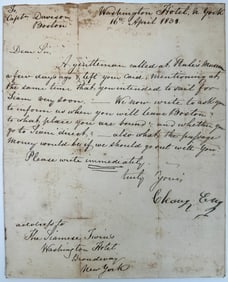 To
Captn Davison
Boston
Washington Hotel, N. York
16th April 1832.
Dear Sir,
A gentleman called at Peale's Museum
a few days ago & left your Card, mentioning at
the same time that you intended to sail for
Siam very soon. — We now write to ask you
to inform us when you will leave Boston;
to what place you are bound; and whether you
go to Siam direct; — also what the passage
money would be if we should go out with you
Please write immediately.
Truly Yours
Chang Eng
address to
The Siamese Twins
Washington Hotel
Broadway
New York